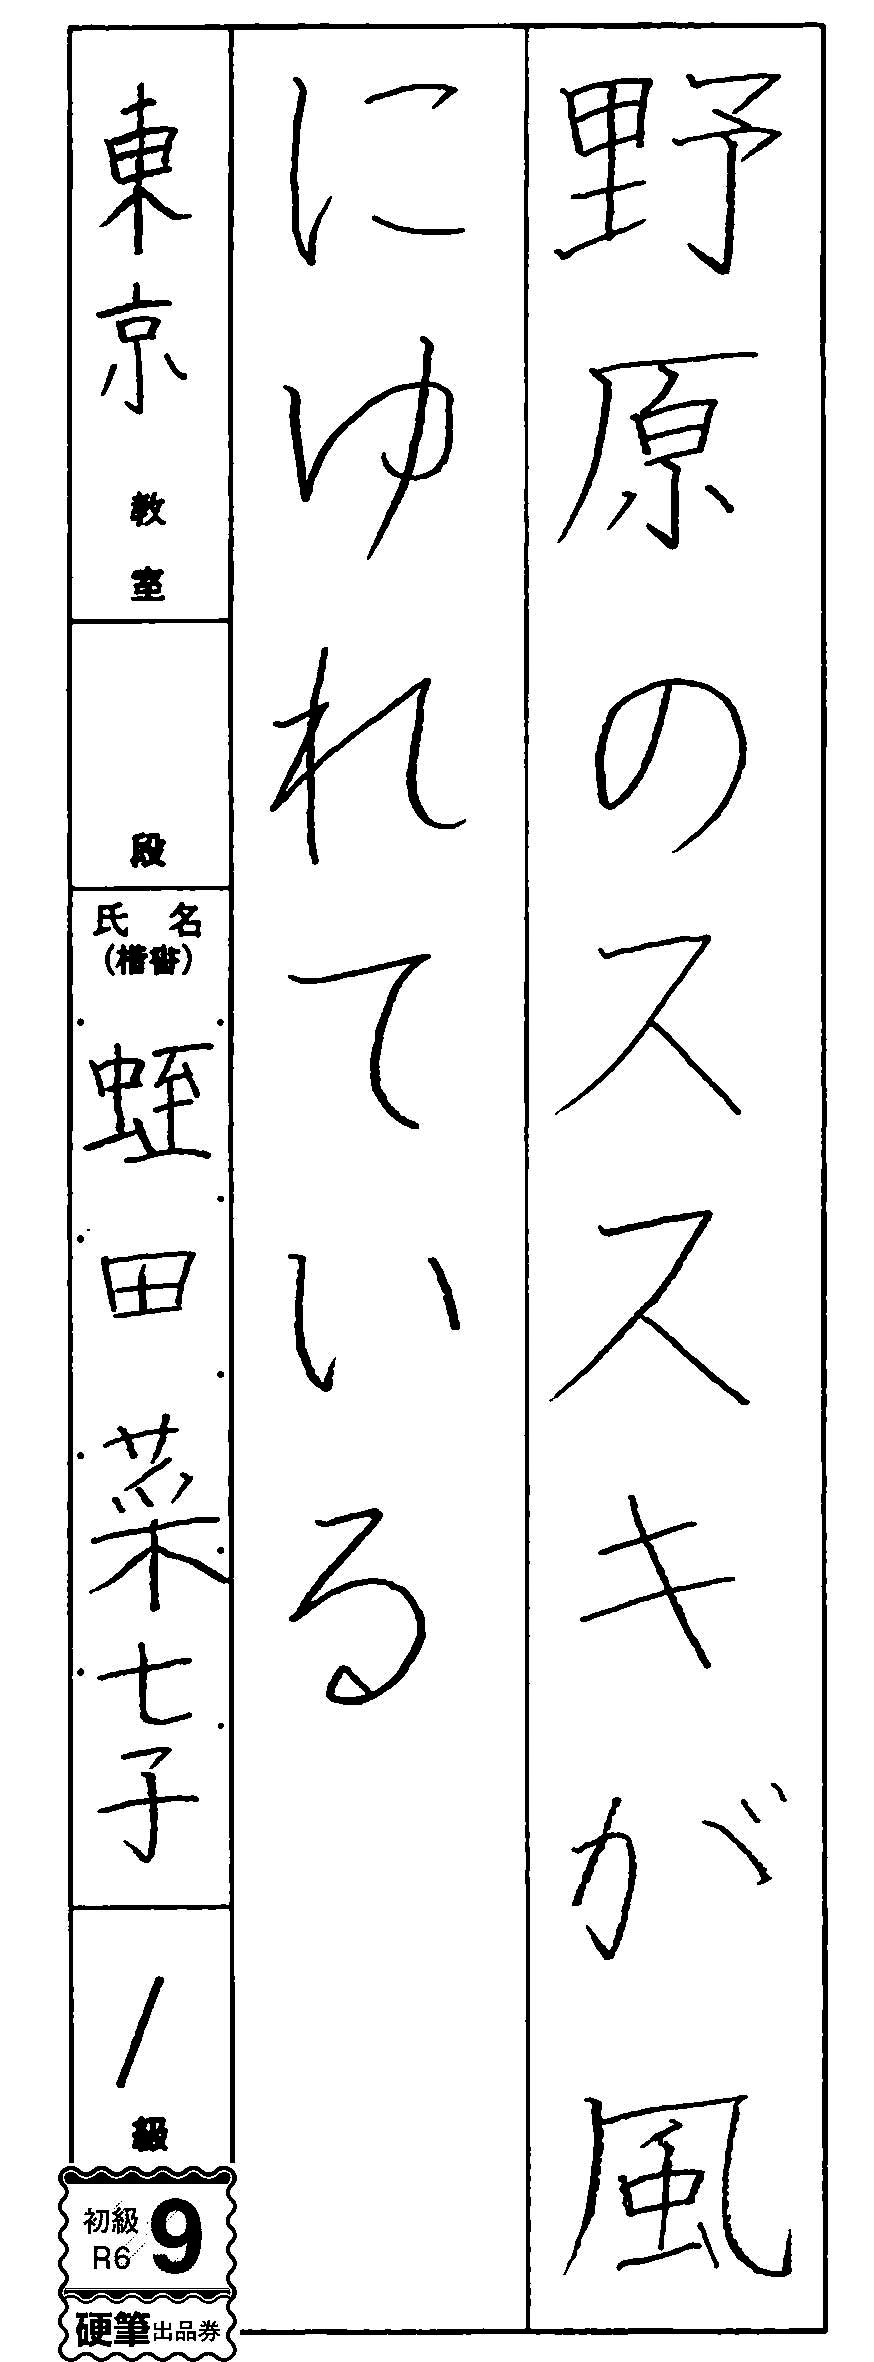 野原のススキが風
にゆれている
東京教室
段
氏名
(楷書)
蛭田菜七子
1級
初級
R6
9
硬筆出品券